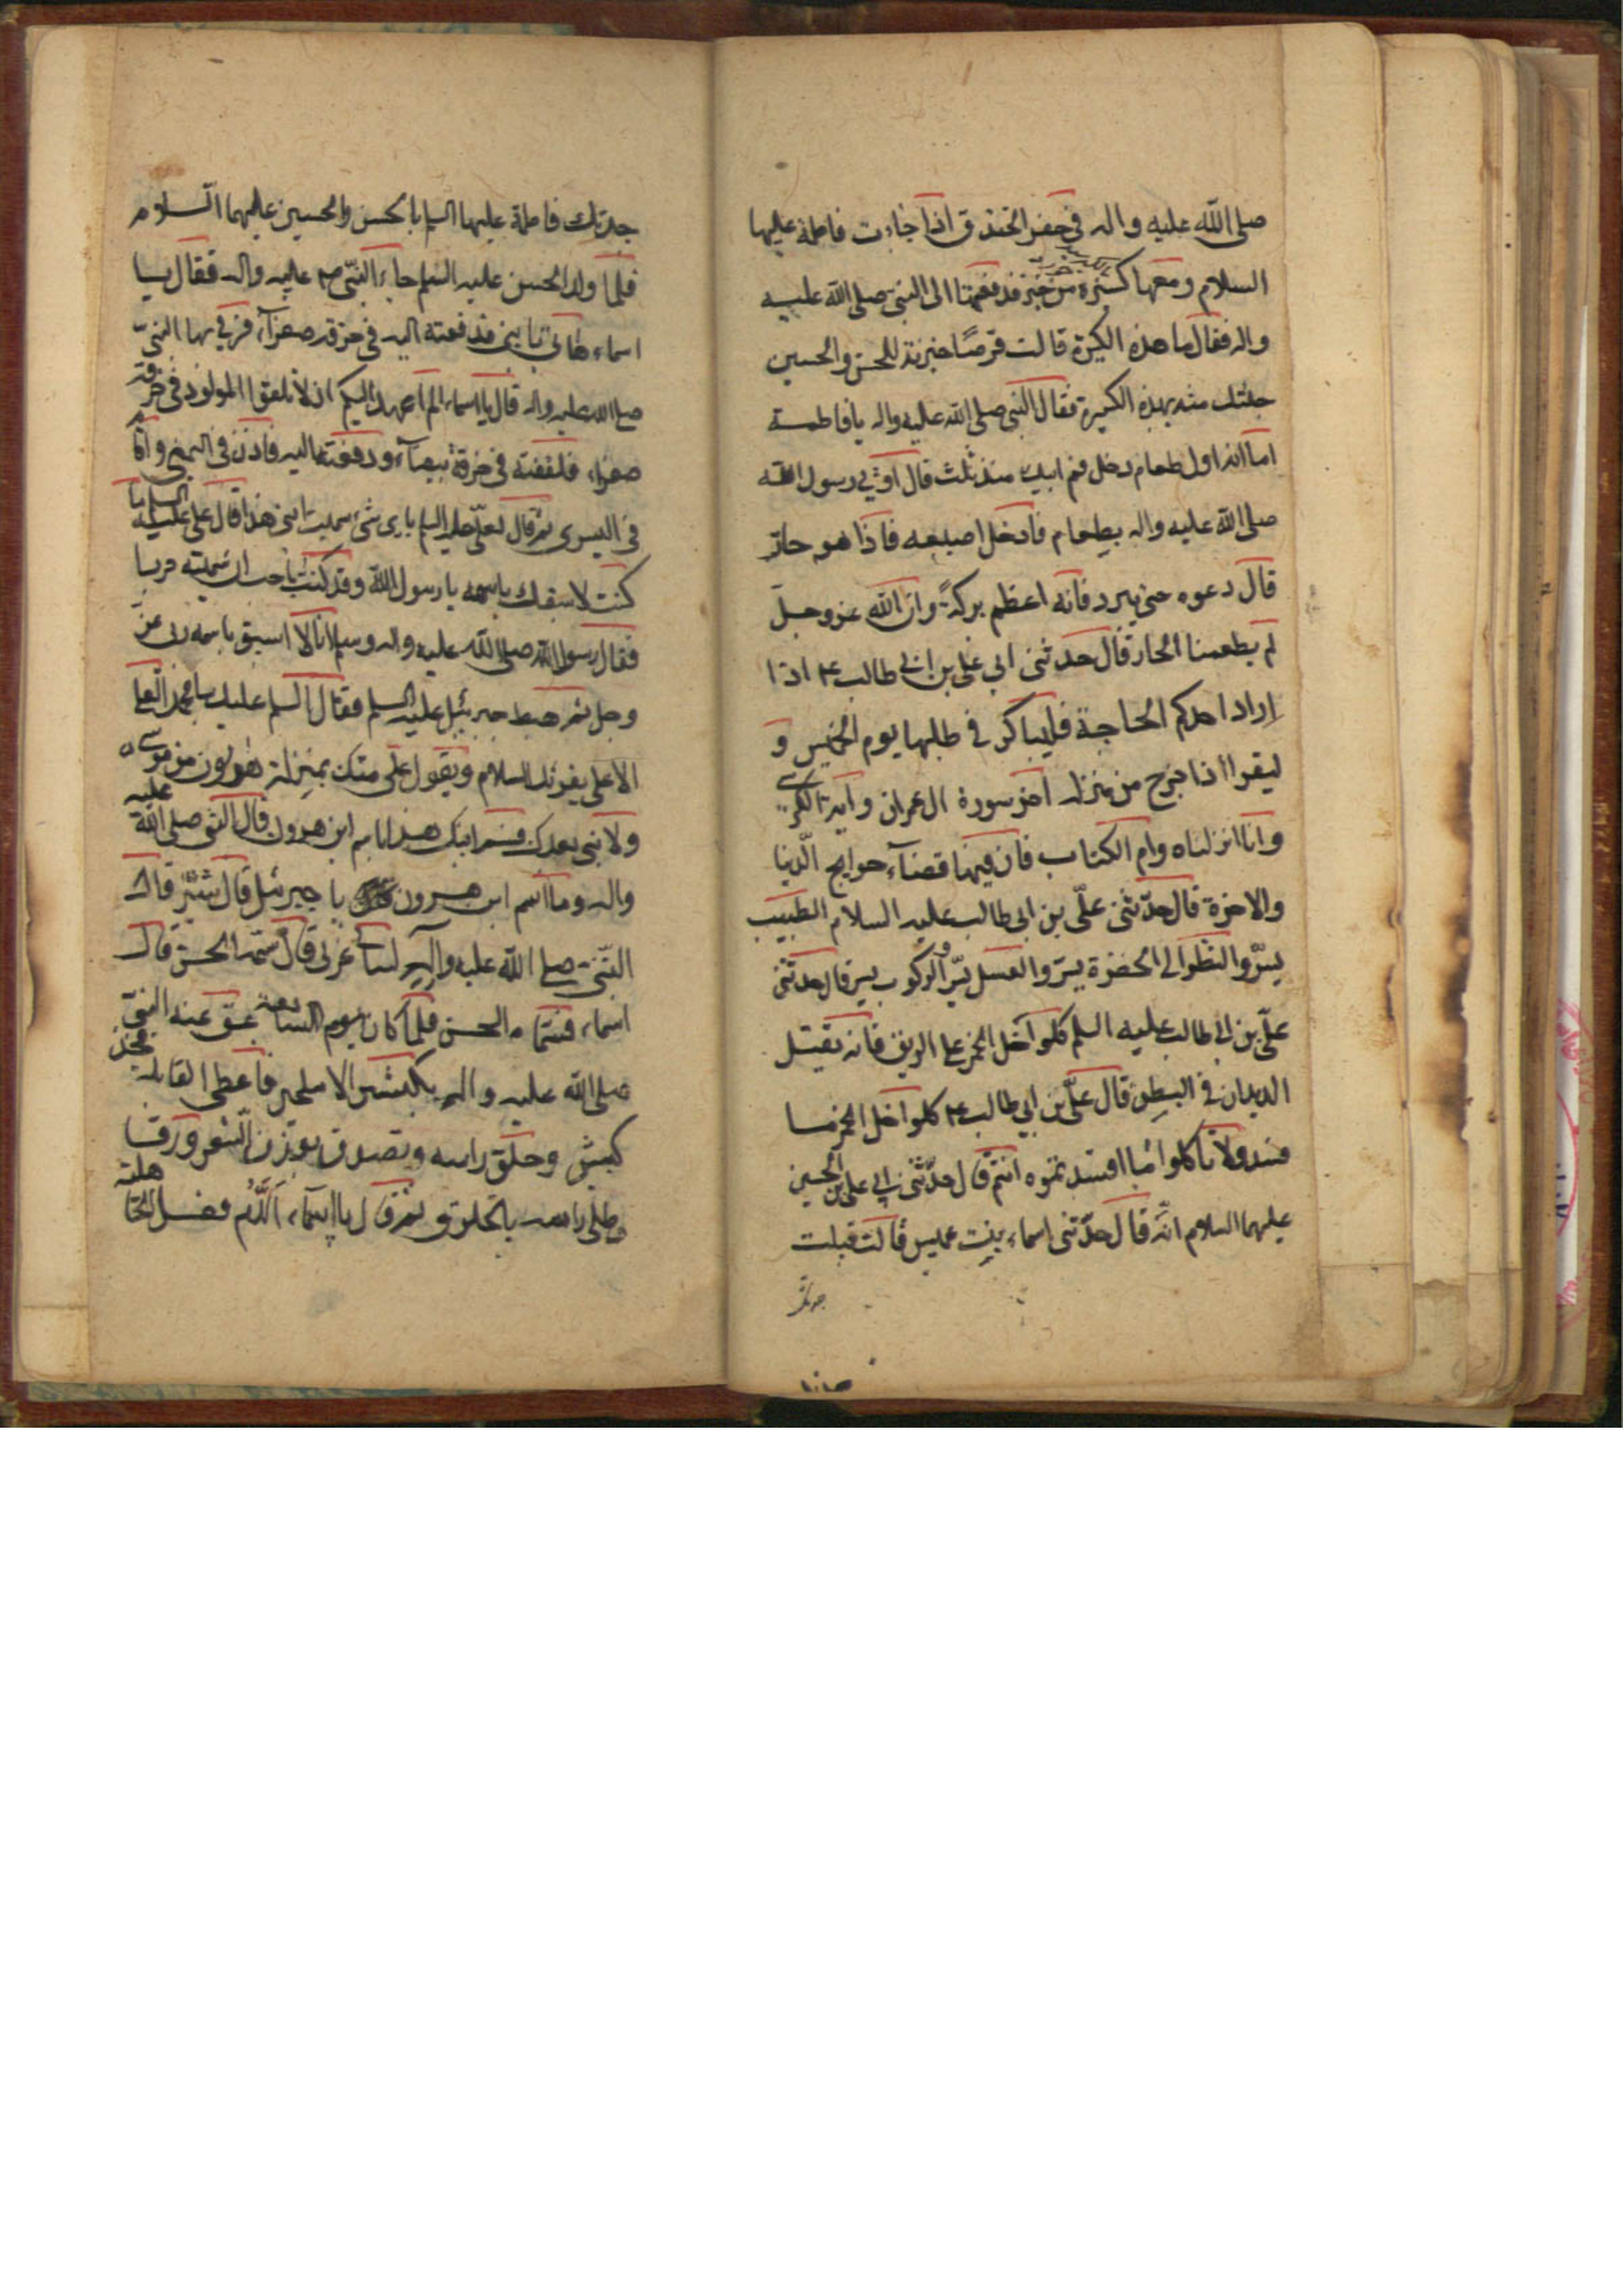 صلى الله عليه واله في حفر الخندق اذا جاءت فاطمة عليها
السلام ومعها كسيرة من خبز فدفعتها الى النبي صلى الله عليه
واله فقال ما هذه الكسرة قالت قرصًا خبزته للحسن والحسين
جئتك منه بهذه الكسيرة فقال النبي صلى الله عليه واله يا فاطمة
اما انه اول طعام دخل فم ابيك منذ ثلث قال اوتي رسول الله
صلى الله عليه واله بطعام فادخل اصبعه فاذا هو حار
قال دعوه حتى يبرد فانه اعظم بركةً وان الله عز وجل
لم يطعمنا الحار قال حدثني ابي علي بن ابي طالب ع اذا
اراد احدكم الحاجة فليباكر في طلبها يوم الخميس و
ليقرا اذا خرج من منزله اخر سورة ال عمران واية الكرسي
وانا انزلناه وام الكتاب فان فيها قضآء حوايج الدنيا
والاخرة قال حدّثني علّي بن ابي طالب عليه السلام الطيب
يسرّ والنظر الى الخضرة يسرّ والعسل يسرّ والركوب يسر قال حدثني
علّي بن ابي طالب عليه السلم كلوا خل الخمر على الريق فانه يقتل
الديدان في البطن قال علّي بن ابي طالب ع كلوا خل الخمر ما
فسد ولا تاكلوا ما افسدتموه انتم قال حدّثني ابي علي بن الحسين
عليهما السلام انّه قال حدّثتني اسماء بنت عميس قالت قبلت
جدتك
جدتك فاطمة عليها السلم بالحسن والحسين عليهما السّلام
فلما ولد الحسن عليه السلم جاء النبّي ص عليه واله فقال يا
اسماء هاتي يا بني فدفعته اليه في خرقة صفرآء فرمى بها النبيّ
صلى الله عليه واله قال يا اسماء الم اعهد اليكم ان لا تلفوا المولود في خرقة
صفراء فلففته في خرقة بيضآء ودفعته اليه فاذن في اليمنى واقام
في اليسرى ثم قال لعلّي عليه السلم باي شئ سميت ابني هذا قال علي عليه السلم ما
كنت لاسبقك باسمه يا رسول الله وقد كنت احب ان اسميته حربا
فقال رسول الله صلى الله عليه واله وسلم انا لا اسبق باسمه ربي عز
وجل ثم هبط جبرئيل عليه السلم فقال السلم عليك يا محمد العلي
الاعلى يقرئك السلام ويقول علي منك بمنزلة هرون من موسى
ولا نبي بعدك فسم ابنك هذا باسم ابن هرون قال النبي صلى الله عليه
واله وما اسم ابن هرون يا جبرئيل قال شبّر قال
النبّي صلى الله عليه واله لساني عربي قال سمّه الحسن قالت
اسماء فسمّاه الحسن فلما كان يوم السابعة عق عنه النبيّ
صلى الله عليه واله بكبشين املحين فاعطى القابلة فخذ
كبش وحلق راسه وتصدق بوزن الشعر ورقا
وطلى راسه بالخلوق ثم قال يا اسمآء الدّم فعل الجاهلية